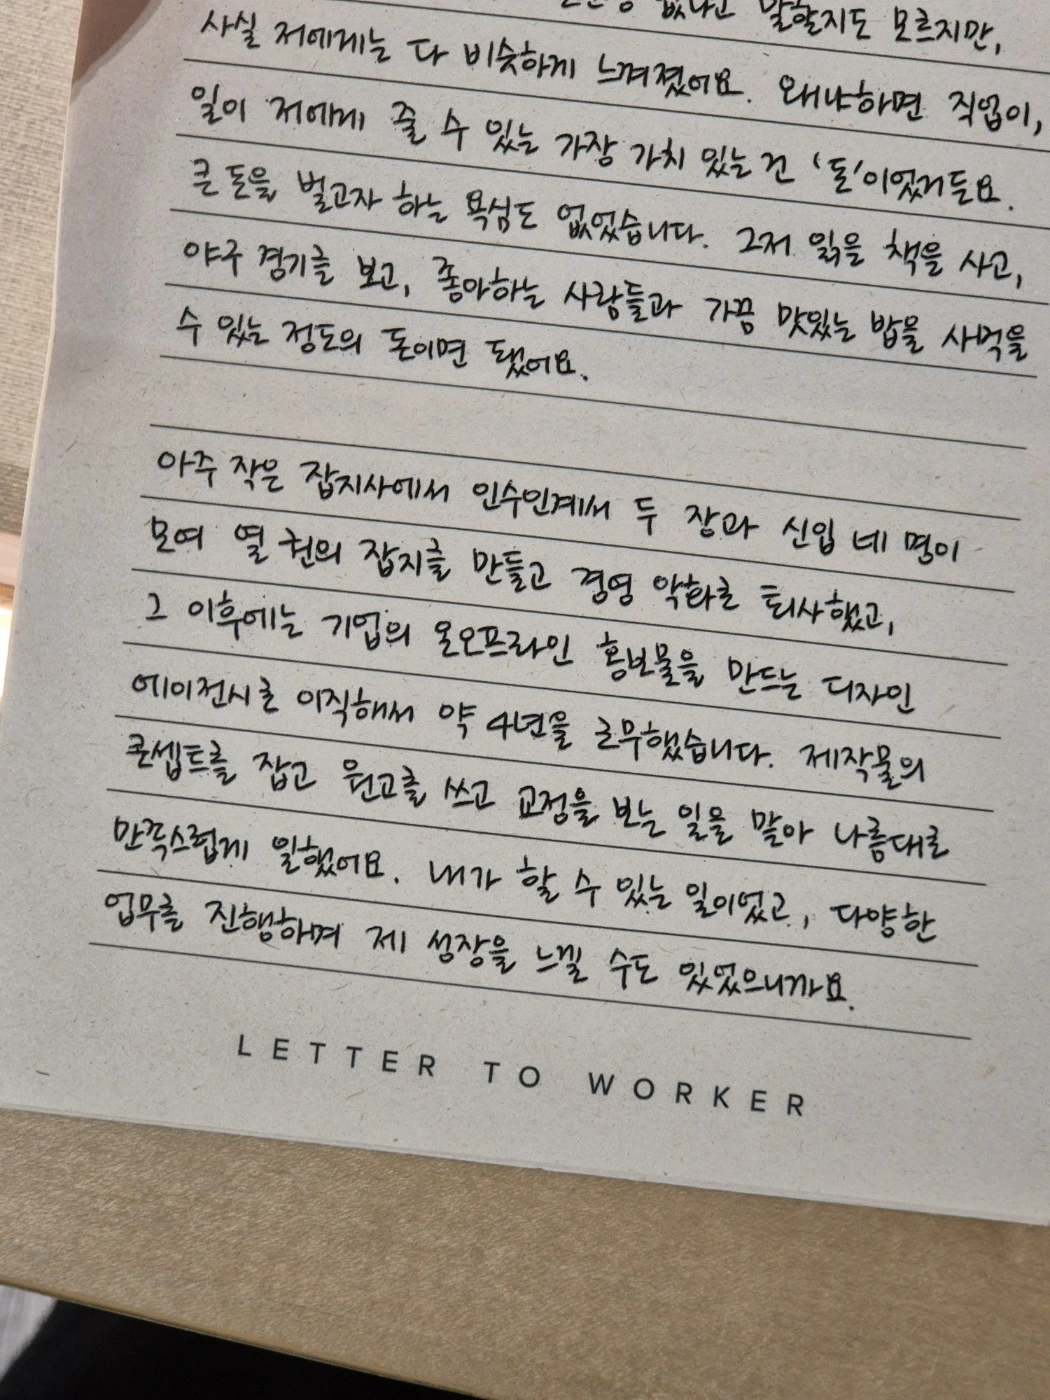 없다고 말할지도 모르지만,
사실 저에게는 다 비슷하게 느껴졌어요. 왜냐하면 직업이,
일이 저에게 줄 수 있는 가장 가치 있는 건 '돈'이었거든요.
큰 돈을 벌고자 하는 욕심도 없었습니다. 그저 읽을 책을 사고,
야구 경기를 보고, 좋아하는 사람들과 가끔 맛있는 밥을 사먹을
수 있는 정도의 돈이면 됐어요.
아주 작은 잡지사에서 인수인계서 두 장과 신입 네 명이
모여 열 권의 잡지를 만들고 경영 악화로 퇴사했고,
그 이후에는 기업의 온오프라인 홍보물을 만드는 디자인
에이전시로 이직해서 약 4년을 근무했습니다. 제작물의
콘셉트를 잡고 원고를 쓰고 교정을 보는 일을 맡아 나름대로
만족스럽게 일했어요. 내가 할 수 있는 일이었고, 다양한
업무를 진행하며 제 성장을 느낄 수도 있었으니까요.
LETTER TO WORKER